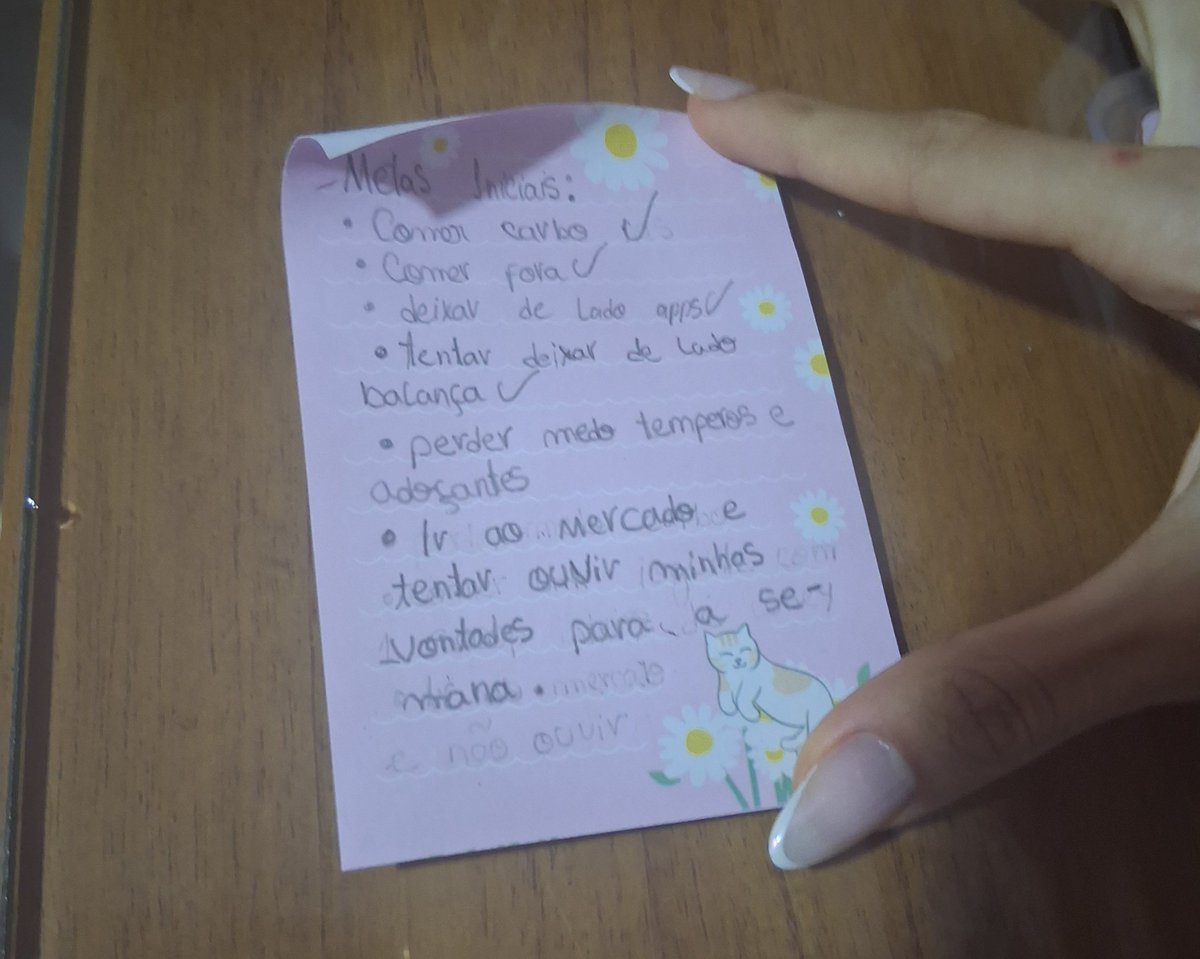 - Metas Iniciais:
• Comer carbo ✓
• Comer fora ✓
• deixar de lado apps ✓
• tentar deixar de lado
balança ✓
• perder medo temperos e
adoçantes
• Ir ao mercado e
tentar ouvir minhas com
vontades para a se-
mana. mercado
e não ouvir